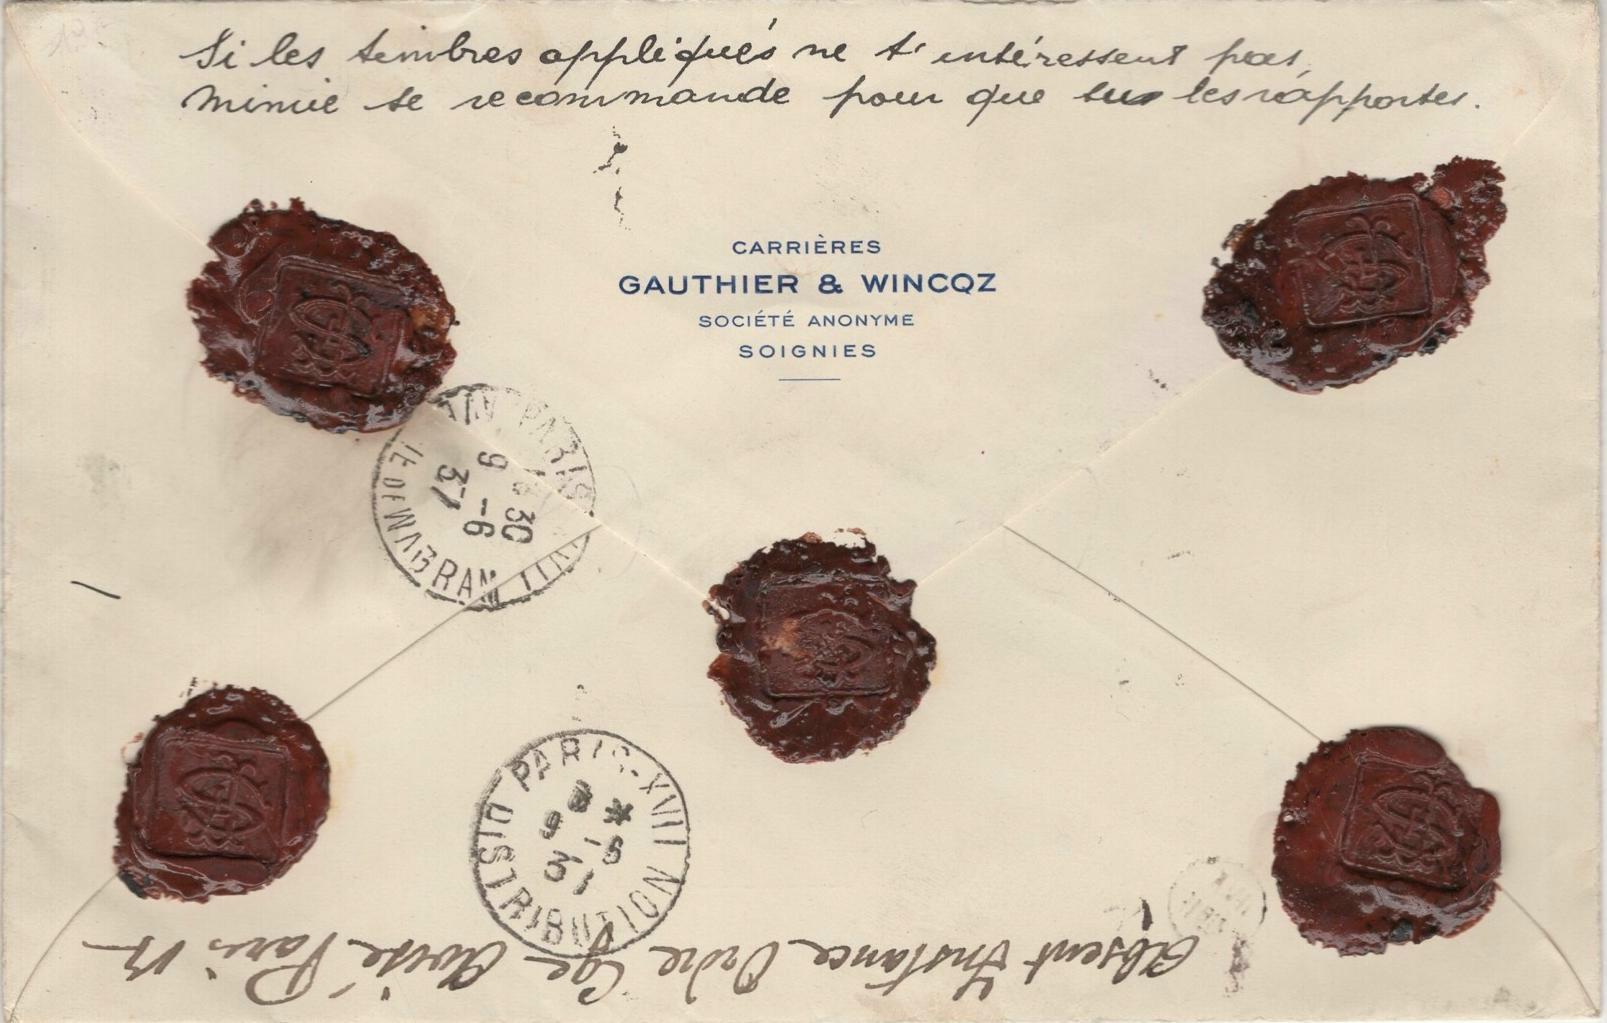 Si les timbres appliqués ne t'intéressent pas,
Mimie se recommande pour que tu les rapportes.
CARRIÈRES
GAUTHIER & WINCQZ
SOCIÉTÉ ANONYME
SOIGNIES
PARIS
30
9 -6
37
DE WAGRAM
PARIS-XVII DISTRIBUTION
8 *
9 -6
37
Absent Instance Ordre Cge Avisé Paris 17